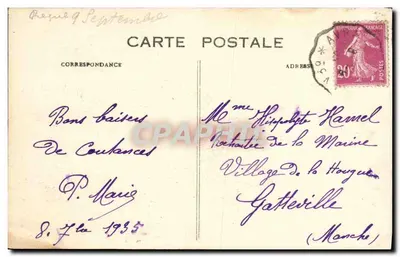 Reçue 9 Septembre
CARTE POSTALE
CORRESPONDANCE
ADRESSE
Bons baisers
De Coutances
P. Marie
8. 7bre 1935
Mme Hippolyte Hamel
Retraitée de la Marine
Village de la Hougue
Gatteville
(Manche)
20c
POSTES
CPARAMA